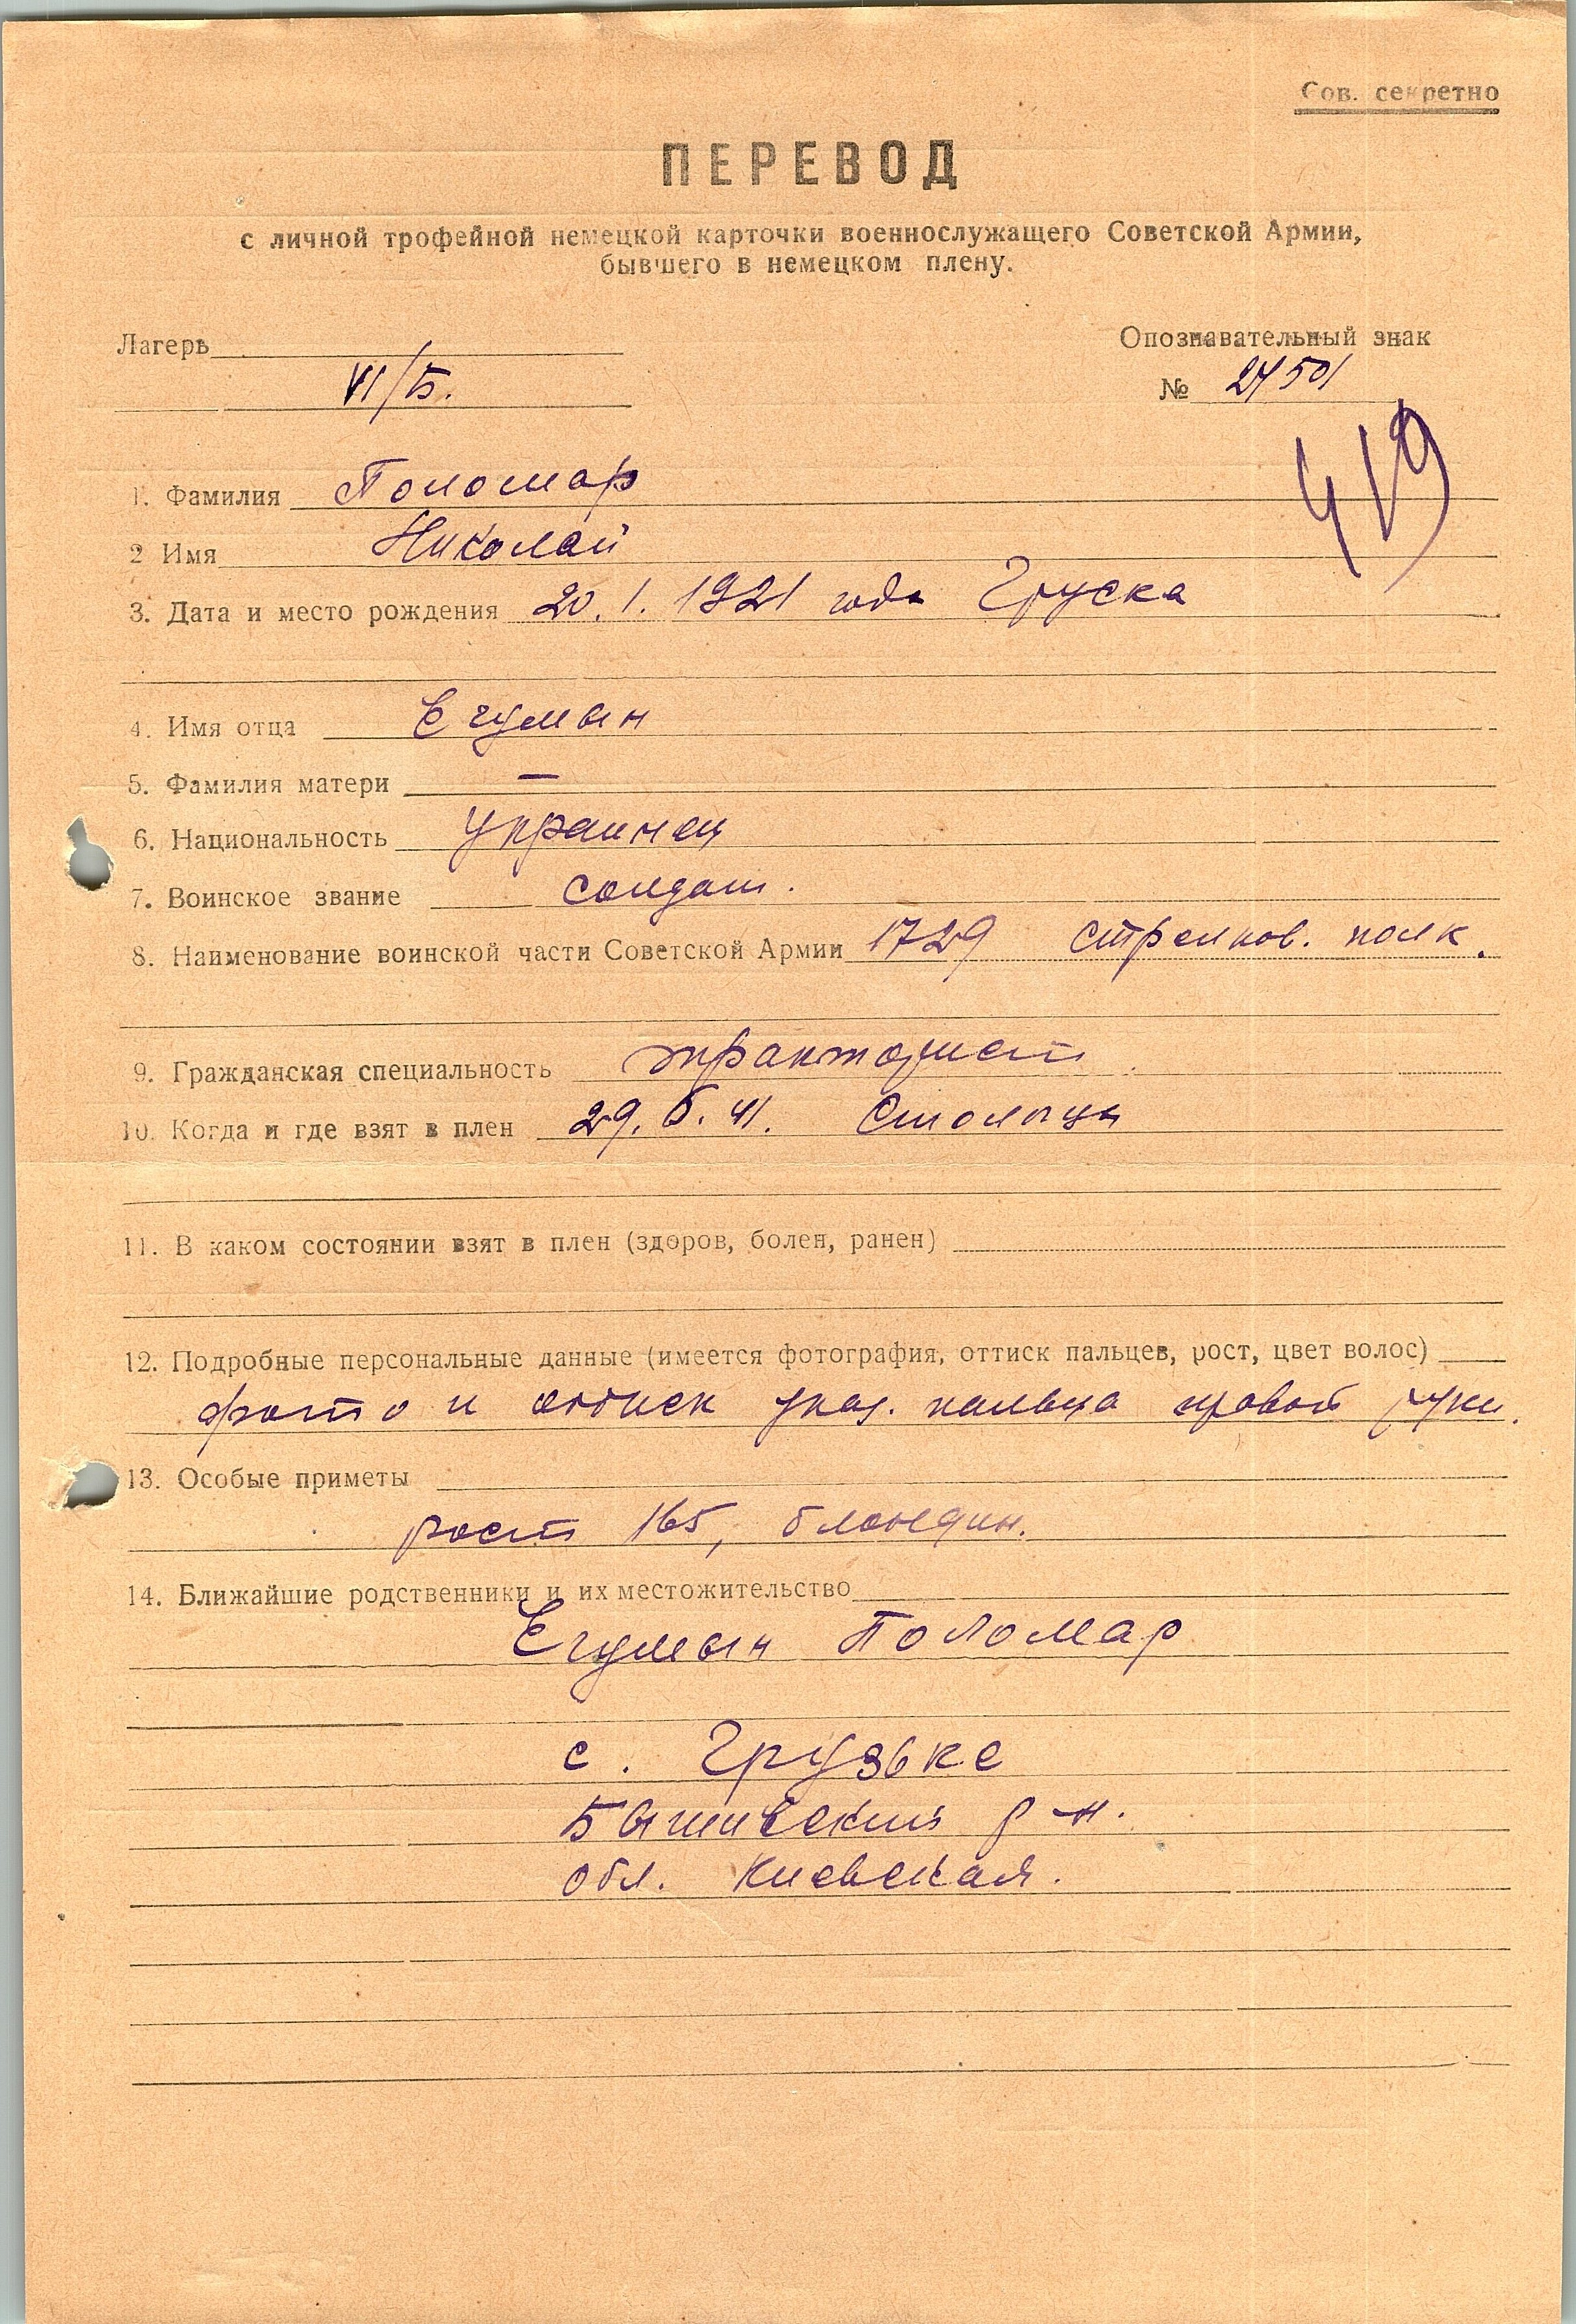 Сов. секретно
ПЕРЕВОД
с личной трофейной немецкой карточки военнослужащего Советской Армии,
бывшего в немецком плену.
Лагерь
Опознавательный знак
VI/Б.
№ 24501
419
1. Фамилия Поломар
2 Имя Николай
3. Дата и место рождения 20. 1. 1921 года Груска
4. Имя отца Егумын
5. Фамилия матери —
6. Национальность украинец
7. Воинское звание солдат.
8. Наименование воинской части Советской Армии 1729 стрелков. полк.
9. Гражданская специальность тракторист
10. Когда и где взят в плен 29. 6. 41. Столыцы
11. В каком состоянии взят в плен (здоров, болен, ранен)
12. Подробные персональные данные (имеется фотография, оттиск пальцев, рост, цвет волос)
фото и оттиск указ. пальца правой руки.
13. Особые приметы
рост 165, блондин.
14. Ближайшие родственники и их местожительство
Егумын Поломар
с. Грузьке
Бышивский р-н.
обл. Киевская.